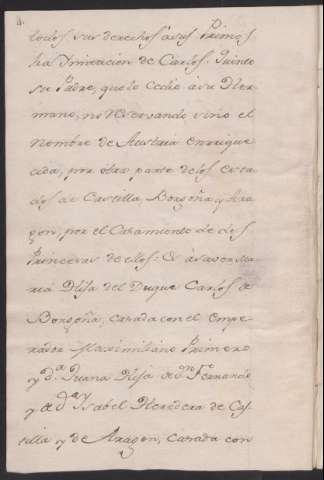 4.
todos sus derechos à sus Primos
ha Imitacion de Carlos Quinto
su Padre, que lo Cedio à su Her
mano, no reservando sino el
Nombre de Austria enrrique
cida, por otra parte de los esta
dos de Castilla, Borgoña, y Ara
gon, por el Casamiento de dos
Princesas de ellos: Es à saver Ma
ria Hija del Duque Carlos de
Borgoña, Casada con el Empe
rador Maximiliano Primero
y d.ª Juana Hija de d.n Fernando
y de d.ª Ysabel Heredera de Cas
tilla y de Aragon, Casada con